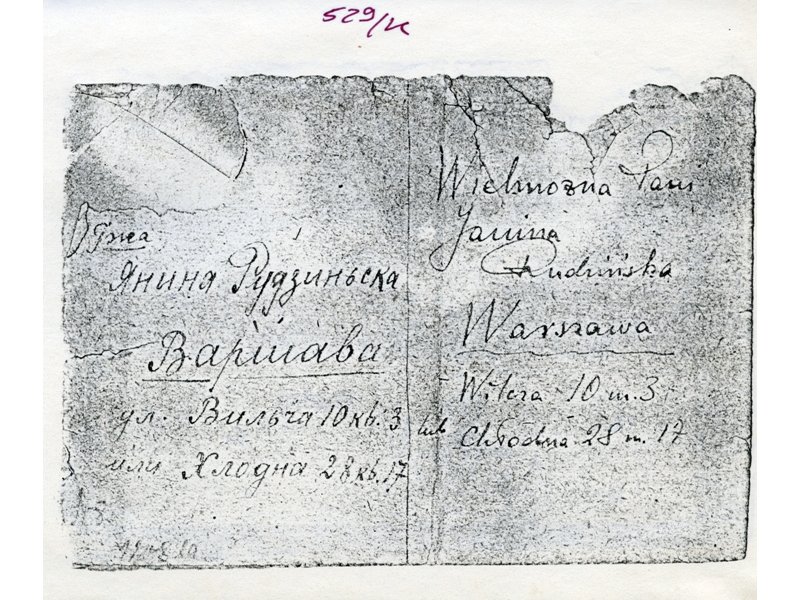 529/K
Г-жа
Янина Рудзиньска
Варшава
ул. Вильча 10 кв. 3
или Хлодна 28 кв. 17
Wielmożna Pani
Janina
Rudzińska
Warszawa
Wilcza 10 m. 3
lub Chłodna 28 m. 17